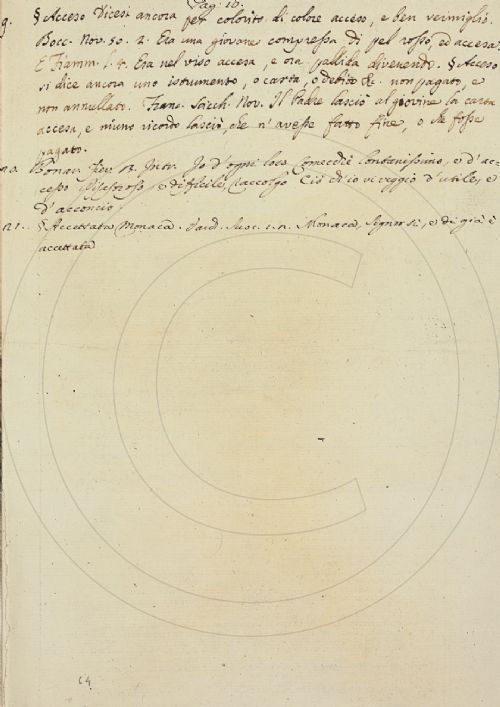 Pag. 10.
9. § Acceso Dicesi ancora per colorito di colore acceso, e ben vermiglio.
Bocc. Nov. 50. 2. Era una giovane compressa di pel rosso, ed accesa.
E Fiamm. 1. 4. Era nel viso accesa, e ora pallida divenendo. § Acceso
si dice ancora uno istrumento, o carta, o debito &c. non pagato, e
non annullato. Franc. Sacch. Nov. Il Padre lasciò al giovine la carta
accesa, e niuno ricordo lasciò, che n' avesse fatto fine, o che fosse
pagato.
20. Bonar. Fier. Intr. Io d'ogni loco, comecchè lontanissimo, e d'ac-
cesso silvestroso e difficile, raccolgo Ciò ch'io vi veggio d'utile, e
d'acconcio
21. § Accettata Monaca. Monaca, Signor sì, e di già è
accettata
64